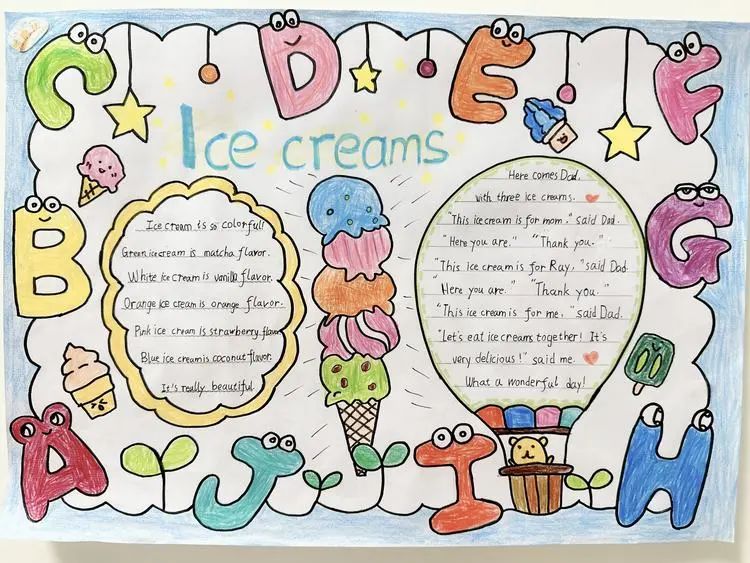 C D E F
Ice creams
B
G
Ice cream is so colorful!
Green ice cream is matcha flavor.
White ice cream is vanilla flavor.
Orange ice cream is orange flavor.
Pink ice cream is strawberry flavor.
Blue ice cream is coconut flavor.
It's really beautiful.
Here comes Dad.
with three ice creams.
"This ice cream is for mom." said Dad.
"Here you are." "Thank you."
"This ice cream is for Ray." said Dad.
"Here you are." "Thank you."
"This ice cream is for me." said Dad.
"Let's eat ice creams together! It's
very delicious!" said me.
What a wonderful day!
A J I H